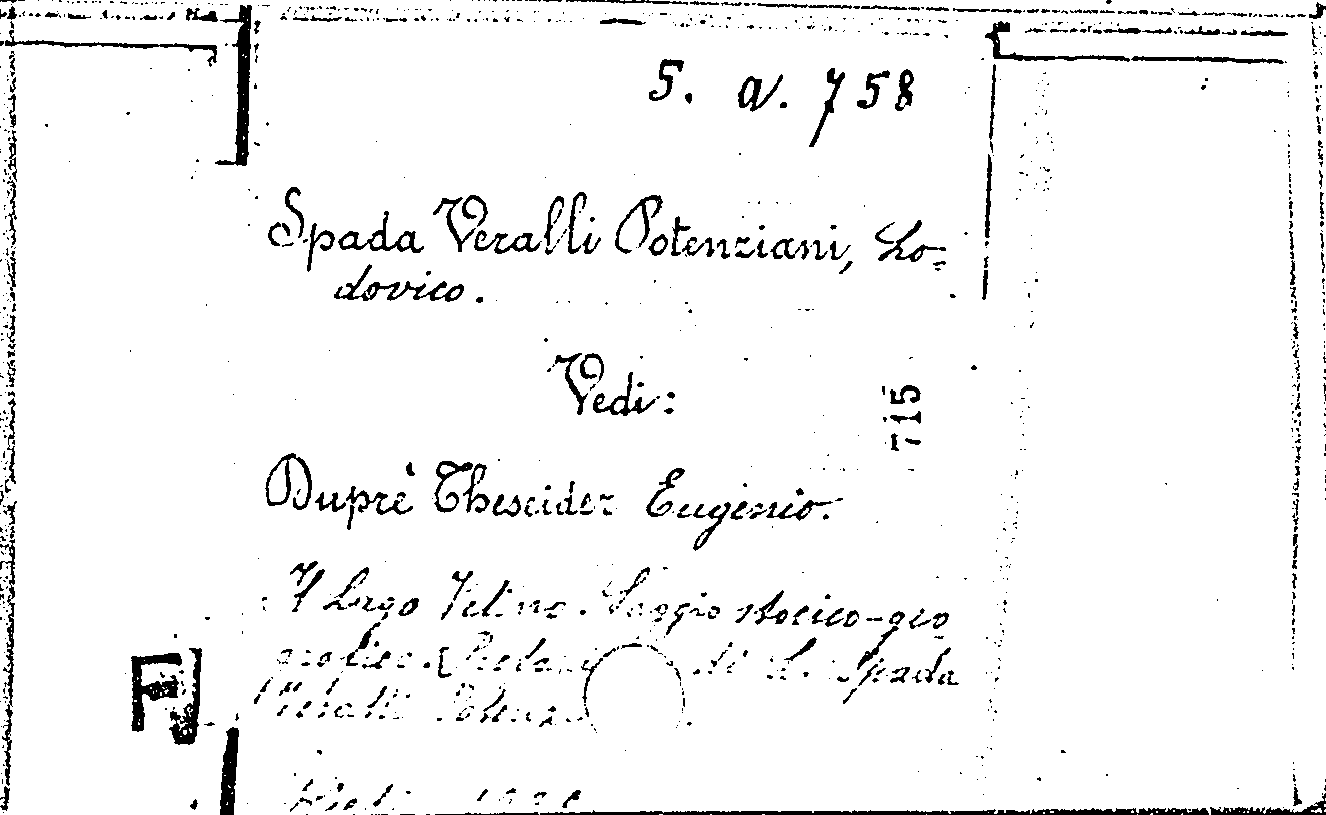 5. a. 758
Spada Veralli Potenziani, Lo=
dovico.
Vedi:
715
Duprè Theseider Eugenio.
Il Lago Velino. Saggio storico-geo
grafico. di L. Spada
Veralli
Rieti